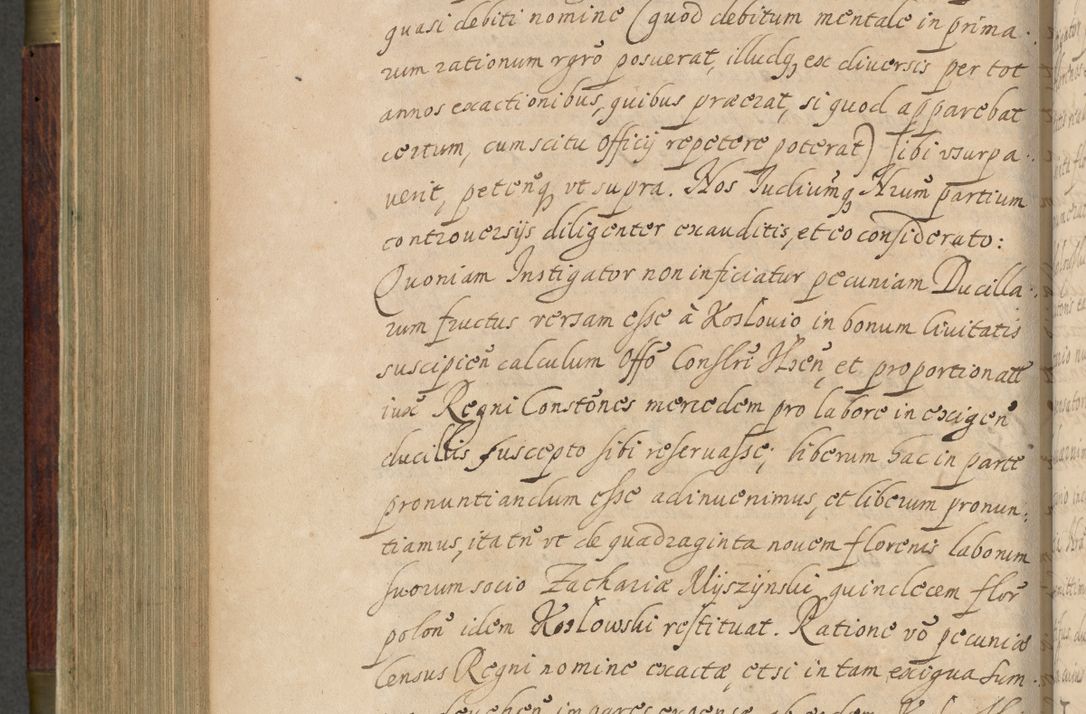 quasi debiti nomine (quod debitum mentale in prima-
rum rationum rgrõ posuerat, illudq ex diuersis per tot
annos exactionibus, quibus præerat, si quod apparebat
certum, cum scitu Officij repetere poterat) sibi vsurpa-
uerit, petenq vt supra. Nos Iudiumq Nrum partium
controuersijs diligenter exauditis, et eo considerato:
Quoniam Instigator non inficiatur pecuniam Ducilla-
rum fructus versam esse à Koslouio in bonum Ciuitatis
suscipien calculum Offõ Conslri
iux Regni Constönes mercedem pro labore in exigen
ducillis suscepto sibi reseruasse; liberum hac in parte
pronuntiandum esse adinuenimus, et liberum pronun-
tiamus, ita tñ vt de quadraginta nouem florenis laborum
suorum socio Zachariæ Myszyński quindecem flor
polon idem Koslowski restituat. Ratione võ pecuniæ
Census Regni nomine exactæ, etsi in tam exigua sum-